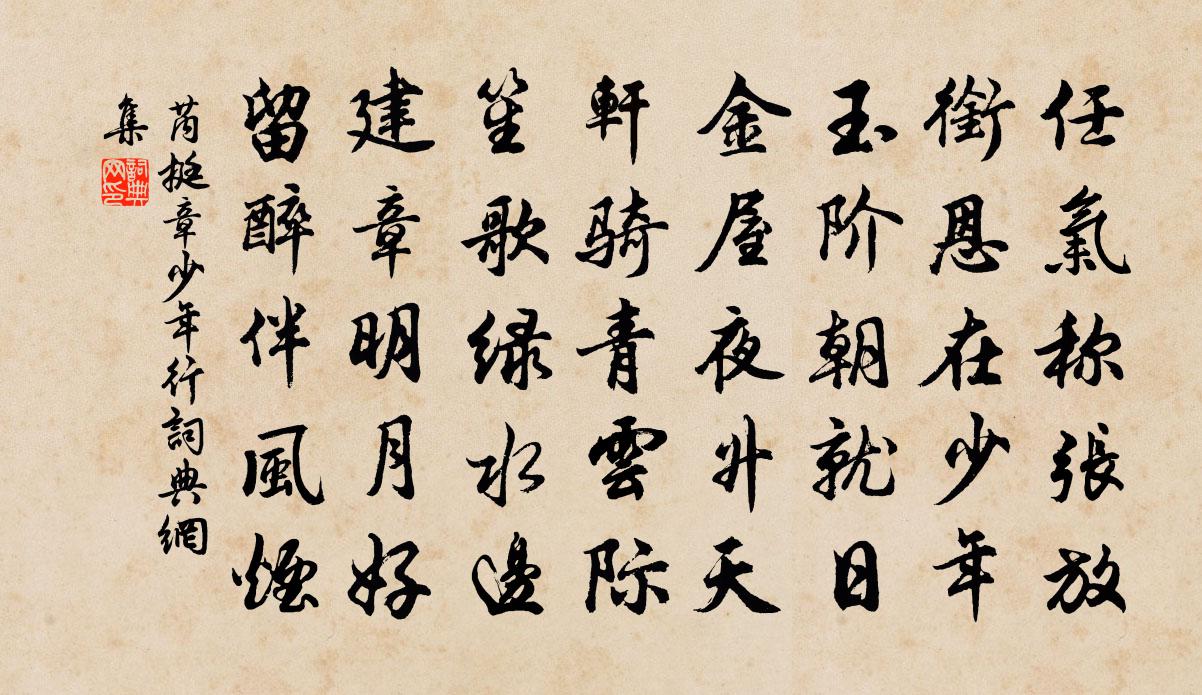 任氣称張放
銜恩在少年
玉阶朝就日
金屋夜升天
軒骑青雲际
笙歌绿水邊
建章明月好
留醉伴風煙
芮挺章少年行詞典網
集
詞典
网印